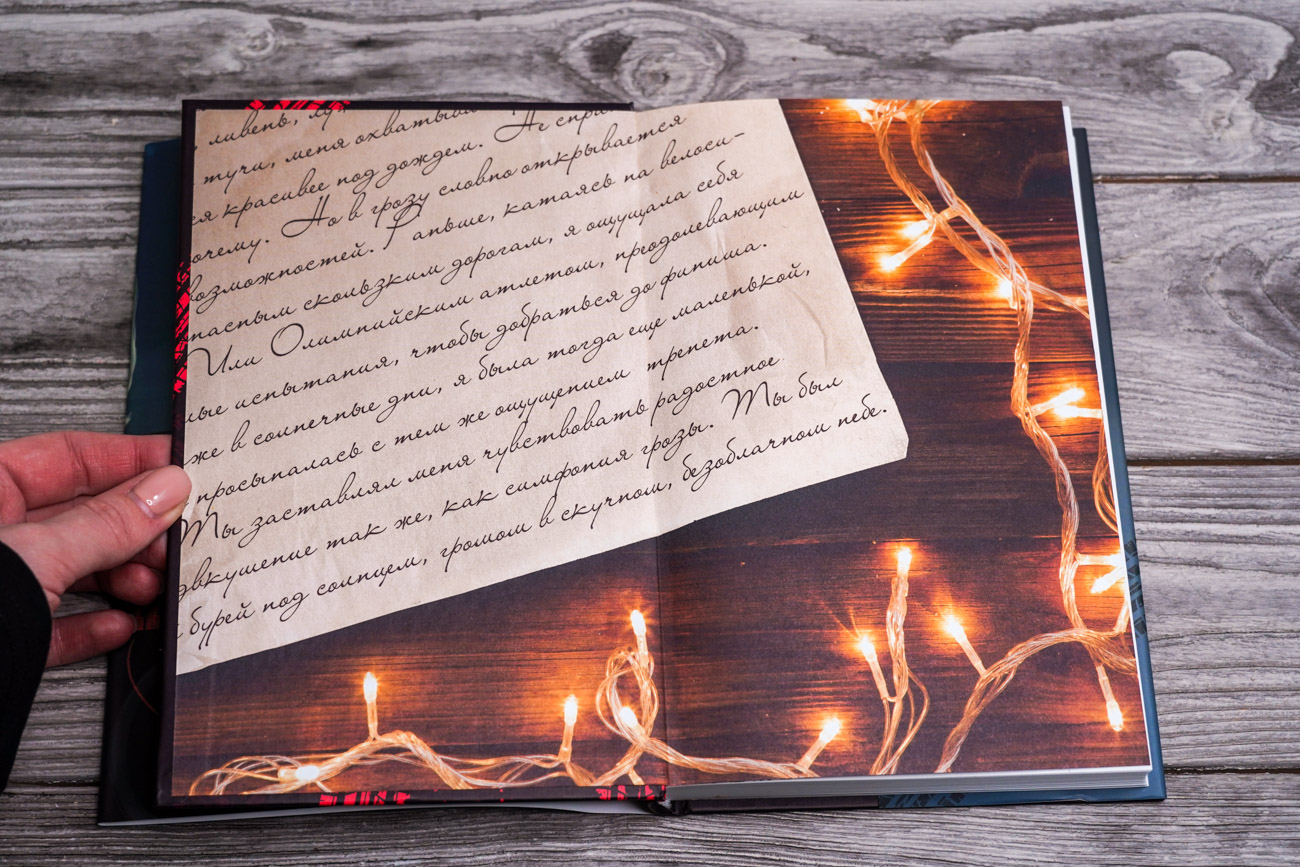 ливень,
тучи, меня охватывал
ся красивее под дождем. Не спра
очему. Но в грозу словно открывается
возможностей. Раньше, катаясь на велоси-
пасным скользким дорогам, я ощущала себя
Или Олимпийским атлетом, преодолевающим
ные испытания, чтобы добраться до финиша.
же в солнечные дни, я была тогда еще маленькой,
просыпалась с тем же ощущением трепета.
Ты заставлял меня чувствовать радостное
едвкушение так же, как симфония грозы. Ты был
бурей под солнцем, громом в скучном, безоблачном небе.